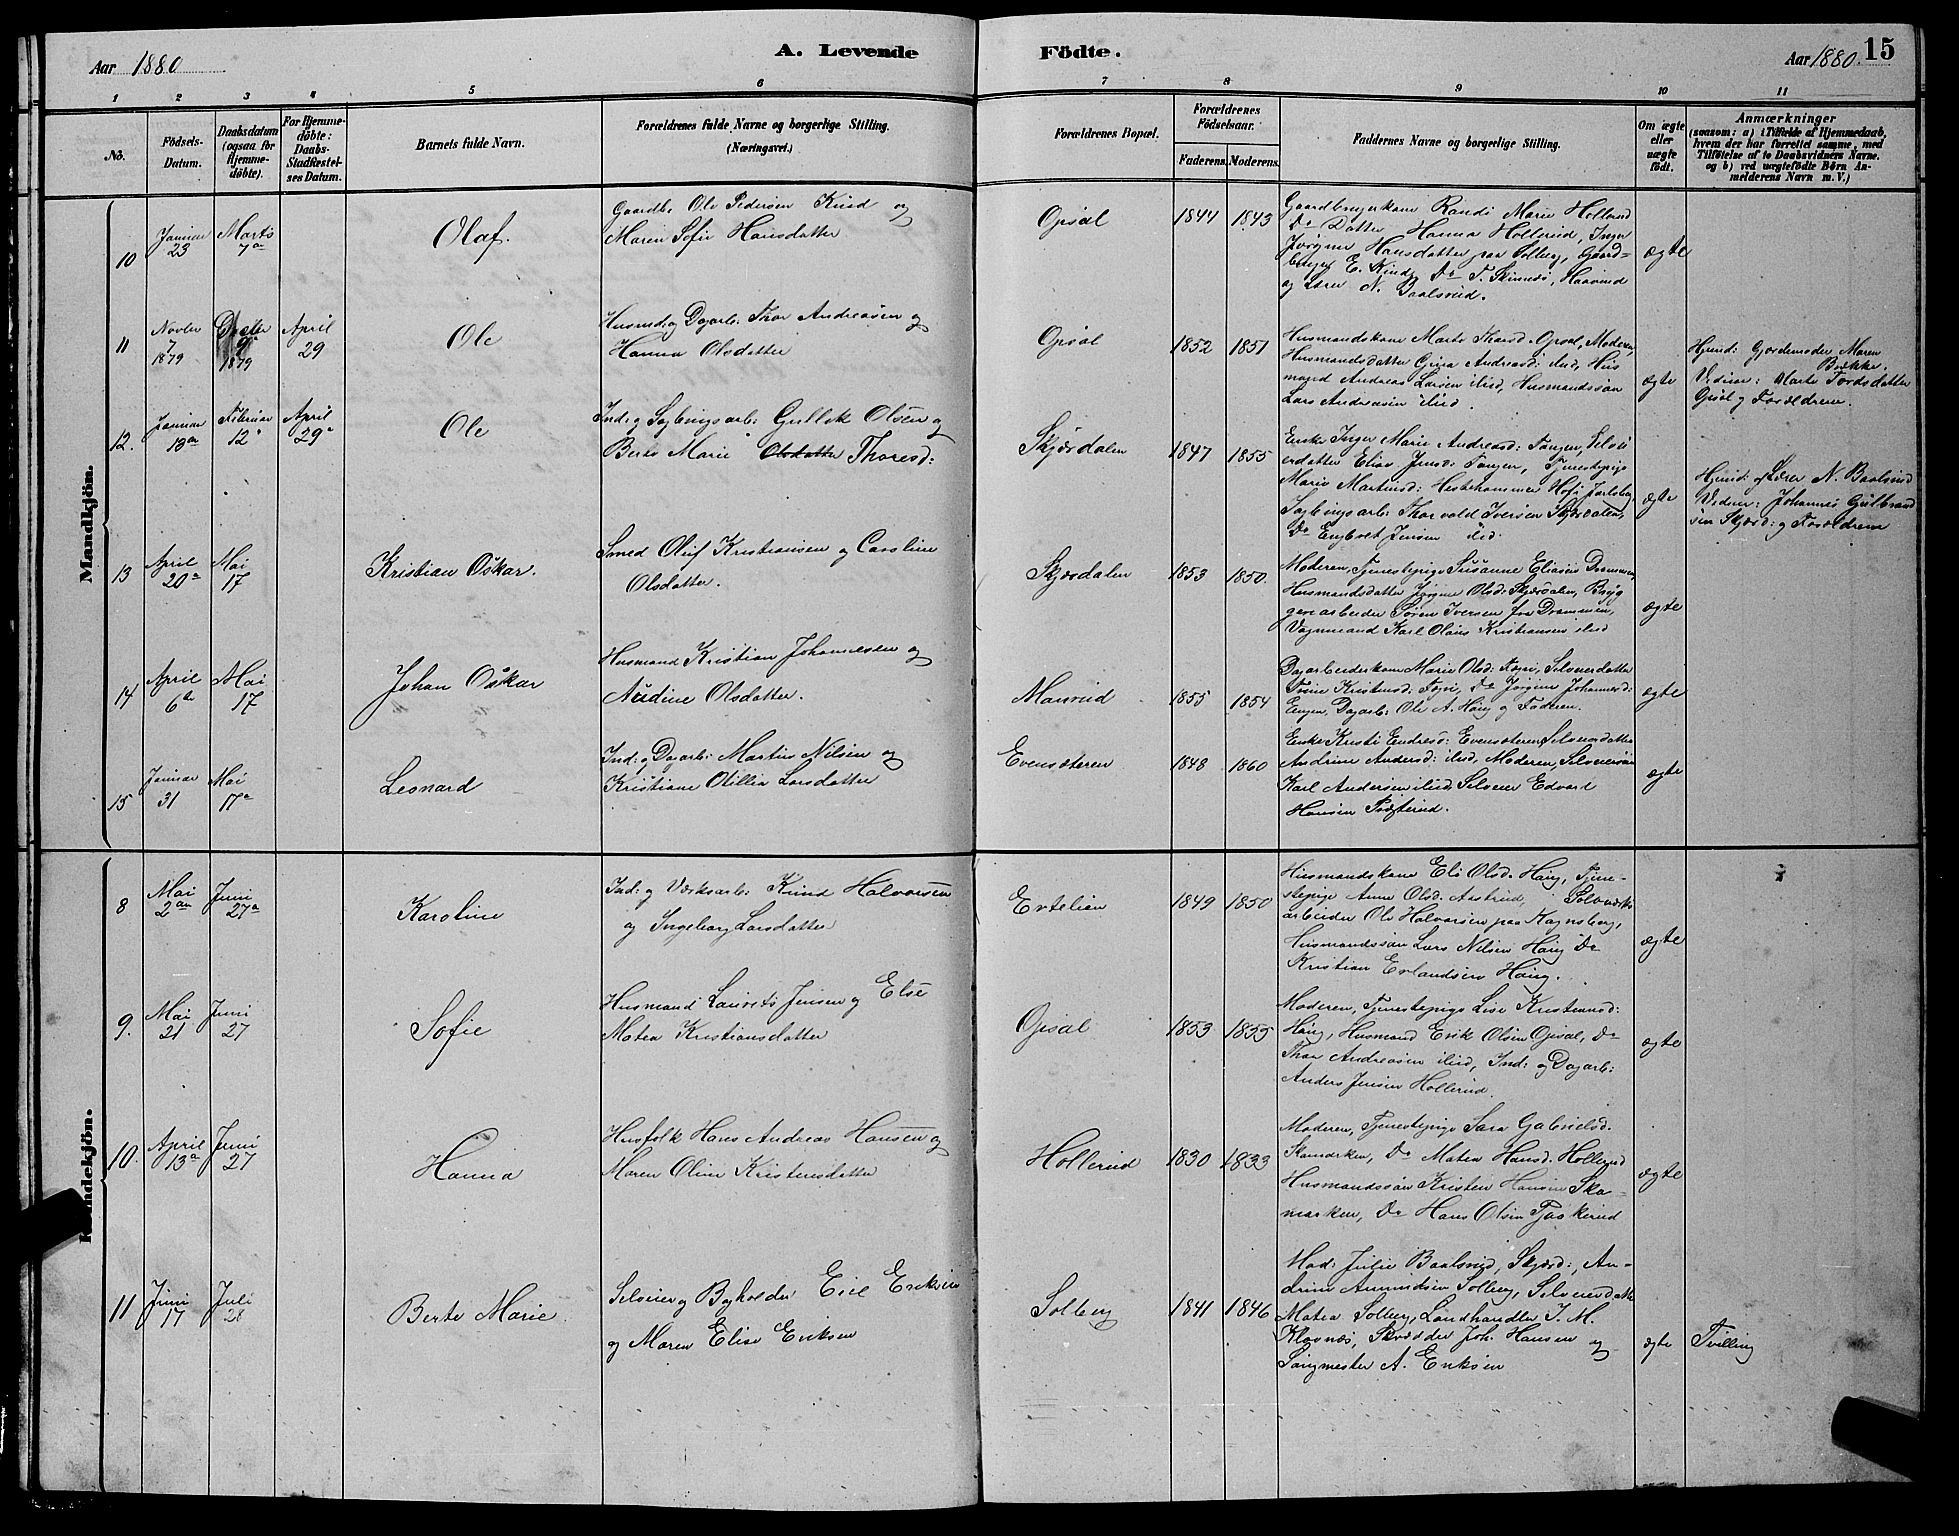 Aar 1880
A. Levende Födte.
Aar 1880. 15
1 2 3 4 5 6 7 8 9 10 11
No.
Födsels-Datum.
Daabsdatum (ogsaa for Hjemmedöbte).
For Hjemmedöbte: Daabs-Stadfæstelses Datum.
Barnets fulde Navn.
Forældrenes fulde Navne og borgerlige Stilling.
(Næringsvei.)
Forældrenes Bopæl.
Forældrenes Födselsaar.
Faderens. Moderens.
Faddernes Navne og borgerlige Stilling.
Om ægte eller uægte födt.
Anmærkninger
(saasom: a) i Tilfælde af Hjemmedaab,
hvem der har forrettet samme, med
Tilföielse af to Daabsvidners Navne.
og b) ved uægtefödte Börn Anmelderens Navn m. V.)
Mandkjön.
10 Januar 23 Marts 7de Olaf.
Gaardbr. Ole Pedersen Kind og
Maren Sofie Hansdatter
Opsal 1844 1843
Gaardbrugerkone Randi Marie Hollerud
Do Datter Hanna Hollerud, Inger
Jørgine Hansdatter paa Solberg, Gaard-
bruger E. Kind, Do T. Skinnes, Haavind
og Lærer N. Baalsrud.
ægte
11 Novbr 7 1879 9 1879 April 29 Ole
Husmd: og Dagarb: Thor Andreasen og
Hanna Olsdatter
Opsal 1852 1851
Husmandskone Marte Thorsd. Opsal, Moderen,
Husmandsdatter Gina Andreasd: ibid, Hus
mand Andreas Larsen ibid, Husmandssøn
Lars Andreasen ibid.
ægte
Hjemd: Gjordemoder Maren
Brække.
Vidner: Marte Tordsdatter
Opsal og Forældrene.
12. Januar 13de Februar 12 April 29 Ole
Ind: og Sagbrugsarb: Gullik Olsen og
Berte Marie Olsdatter Thoresd:
Skjærdalen 1847 1855
Enke Inger Marie Andreasd: Tangen, Selvei
erdatter Elise Jensd: Tangen, Tjenestepige
Marie Martinsd: Hestehammer Hofs Jarlsberg,
Sagbrugsarb: Thorvald Iversen Skjærdalen,
Do Engbret Jensen ibid.
ægte
Hjemd: af Lærer N. Baalsrud
Vidner: Johannes Gulbrand
sen Skjærd: og Forældrene
13 April 20de Mai 17 Kristian Oskar.
Smed Oluf Kristiansen og Caroline
Olsdatter.
Skjærdalen 1853 1850.
Moderen, Tjenestepige Susanne Eliasen Drammen,
Husmandsdatter Jørgine Olsd: Skjærdalen, Bryg
geriarbeider Søren Iversen fra Drammen,
Vognmand Karl Olaus Kristiansen ibid
ægte
14 April 6te Mai 17 Johan Oskar
Husmand Kristian Johannesen og
Audine Olsdatter.
Mansrud 1855 1854
Dagarbeiderkone Marie Olsd: Fagri, Selveierdatter
Kristensd: Do Jørgine Johannesd:
Engen, Dagarb: Ole A. Haug og Faderen.
ægte
15 Januar 31 Mai 17de Leonard
Ind: og Dagarb: Martin Nilsen og
Kristiane Otillia Larsdatter
Evensæteren 1848 1860
Enke Kristi Endresd: Evensæteren, Selveierdatter
Andrine Andersd: ibid, Moderen, Selveiersøn
Karl Andersen ibid, Selveier Edvard
Hansen Fægterud.
ægte
Kvindekjön.
8 Mai 2den Juni 27de Karoline
Ind: og Værksarb: Knud Halvorsen
og Ingeborg Larsdatter
Ertelien 1849 1850
Husmandskone Eli Olsd: Haug, Tjene-
stepige Anne Olsd. Aastrud, Sølvverks
arbeider Ole Halvorsen paa Kognsberg,
Husmandssøn Lars Nilsen Haug, Do
Kristian Erlandsen Haug.
ægte
9. Mai 21 Juni 27 Sofie
Husmand Laurits Jensen og Else
Matea Kristiansdatter
Opsal 1853 1855
Moderen, Tjenestepige Lise Kristensd:
Haug, Husmand Erik Olsen Opsal, Do
Thor Andreasen ibid, Ind: og Dagarb:
Anders Jensen Hollerud.
ægte
10. April 13de Juni 27 Hanna
Husfolk Hans Andreas Hansen og
Maren Oline Kristensdatter
Hollerud 1830 1833
Moderen, Tjenestepige Sara Gabrielsd.
Skamarken, Do Matea Hansd. Hollerud
Husmandssøn Kristen Hansen Ska-
marken, Do Hans Olsen Tjøskerud
ægte
11 Juni 17 Juli 28 Berte Marie.
Selveier og Bagholder Eiel Eriksen
og Maren Elise Eriksen
Solberg 1841 1846
Mad: Julie Baalsrud, Skjærd:, An-
drine Amundsen Solberg, Selveierdatter
Matea Solberg, Landhandler J. M.
Klavnæs, Skrædder Joh. Hansen og
Sangmester A. Eriksen
ægte
Tvilling